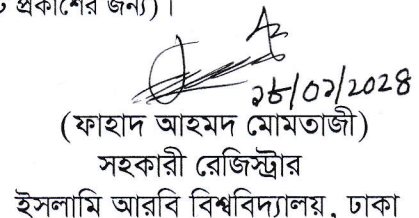 প্রকাশের জন্য)।
(ফাহাদ আহমদ মোমতাজী)
সহকারী রেজিস্ট্রার
ইসলামি আরবি বিশ্ববিদ্যালয়, ঢাকা